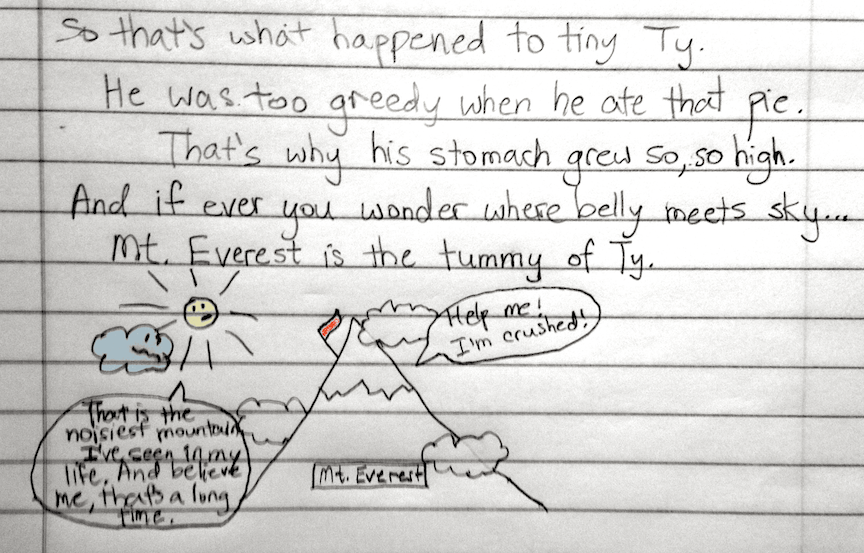 So that's what happened to tiny Ty.
He was too greedy when he ate that pie.
That's why his stomach grew so, so high.
And if ever you wonder where belly meets sky...
Mt. Everest is the tummy of Ty.
Help me!
I'm crushed!
That is the
noisiest mountain
I've seen in my
life. And believe
me, that's a long
time.
Mt. Everest